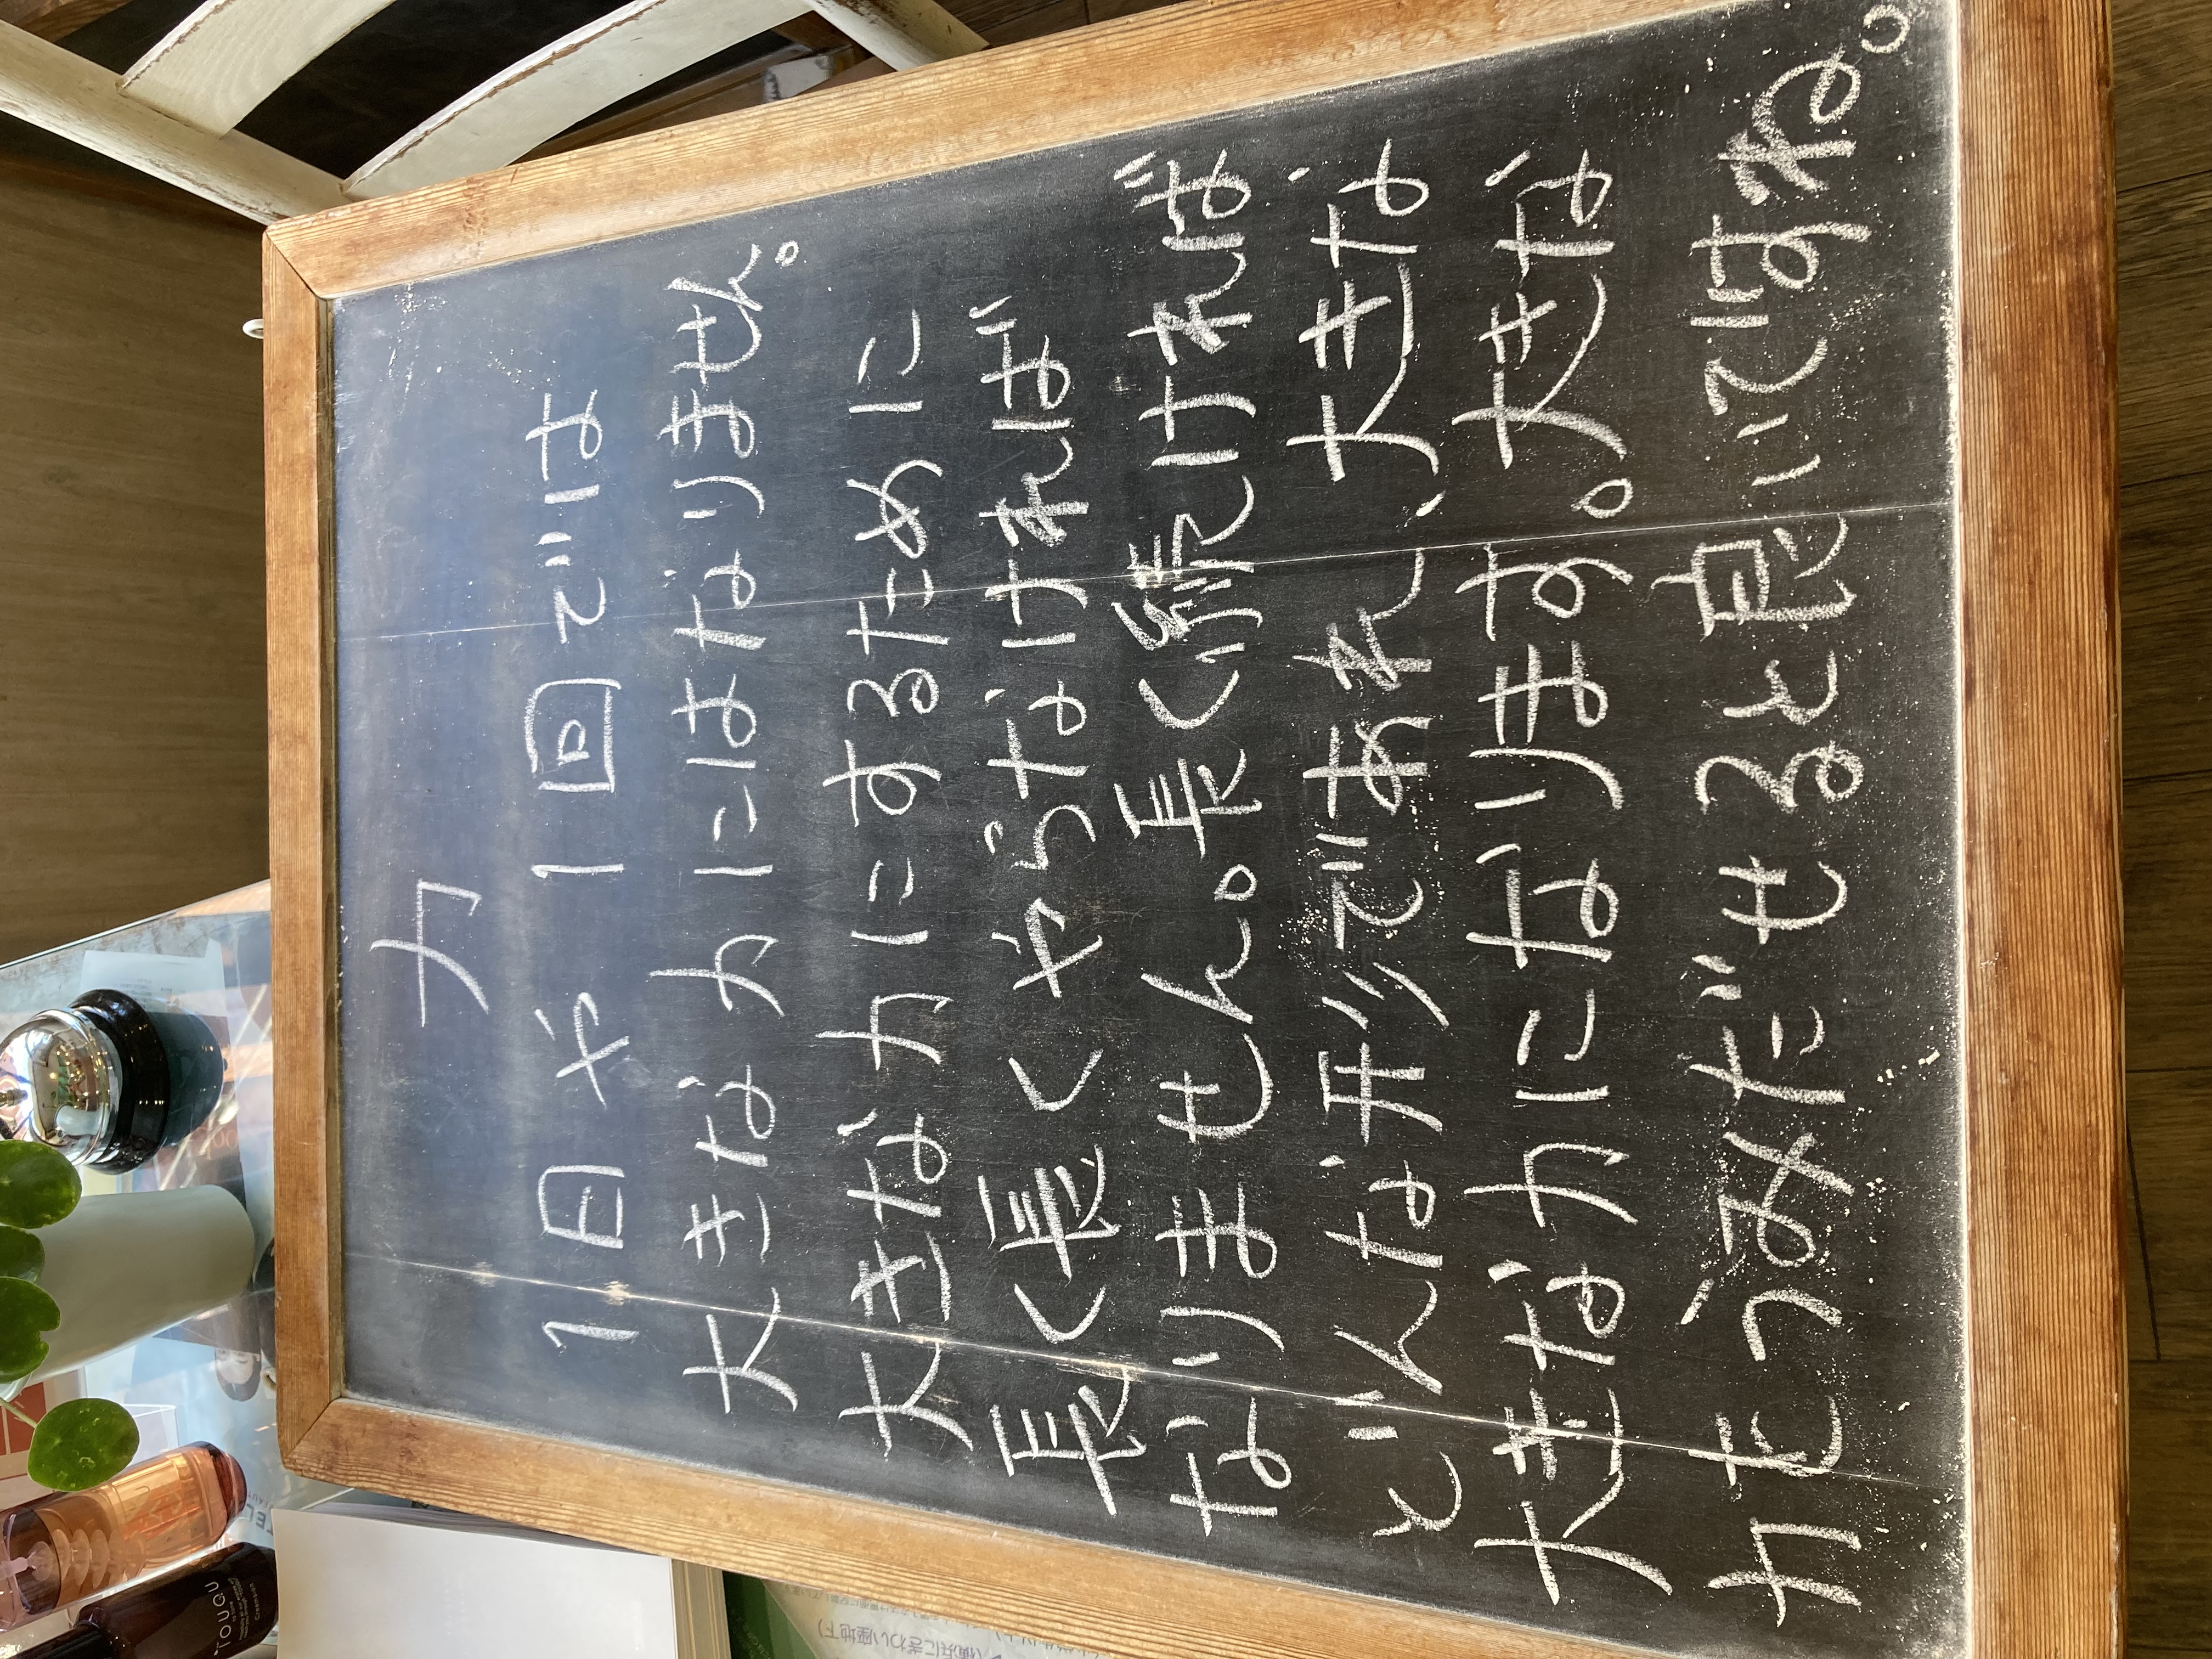 力
1日や1回では
大きな力にはなりません。
大きな力にするために
長く長くやらなければ
なりません。長く続ければ
どんな形であれ、大きな
大きな力になります。大きな
力をうみだせると良いですね。
TOUGU